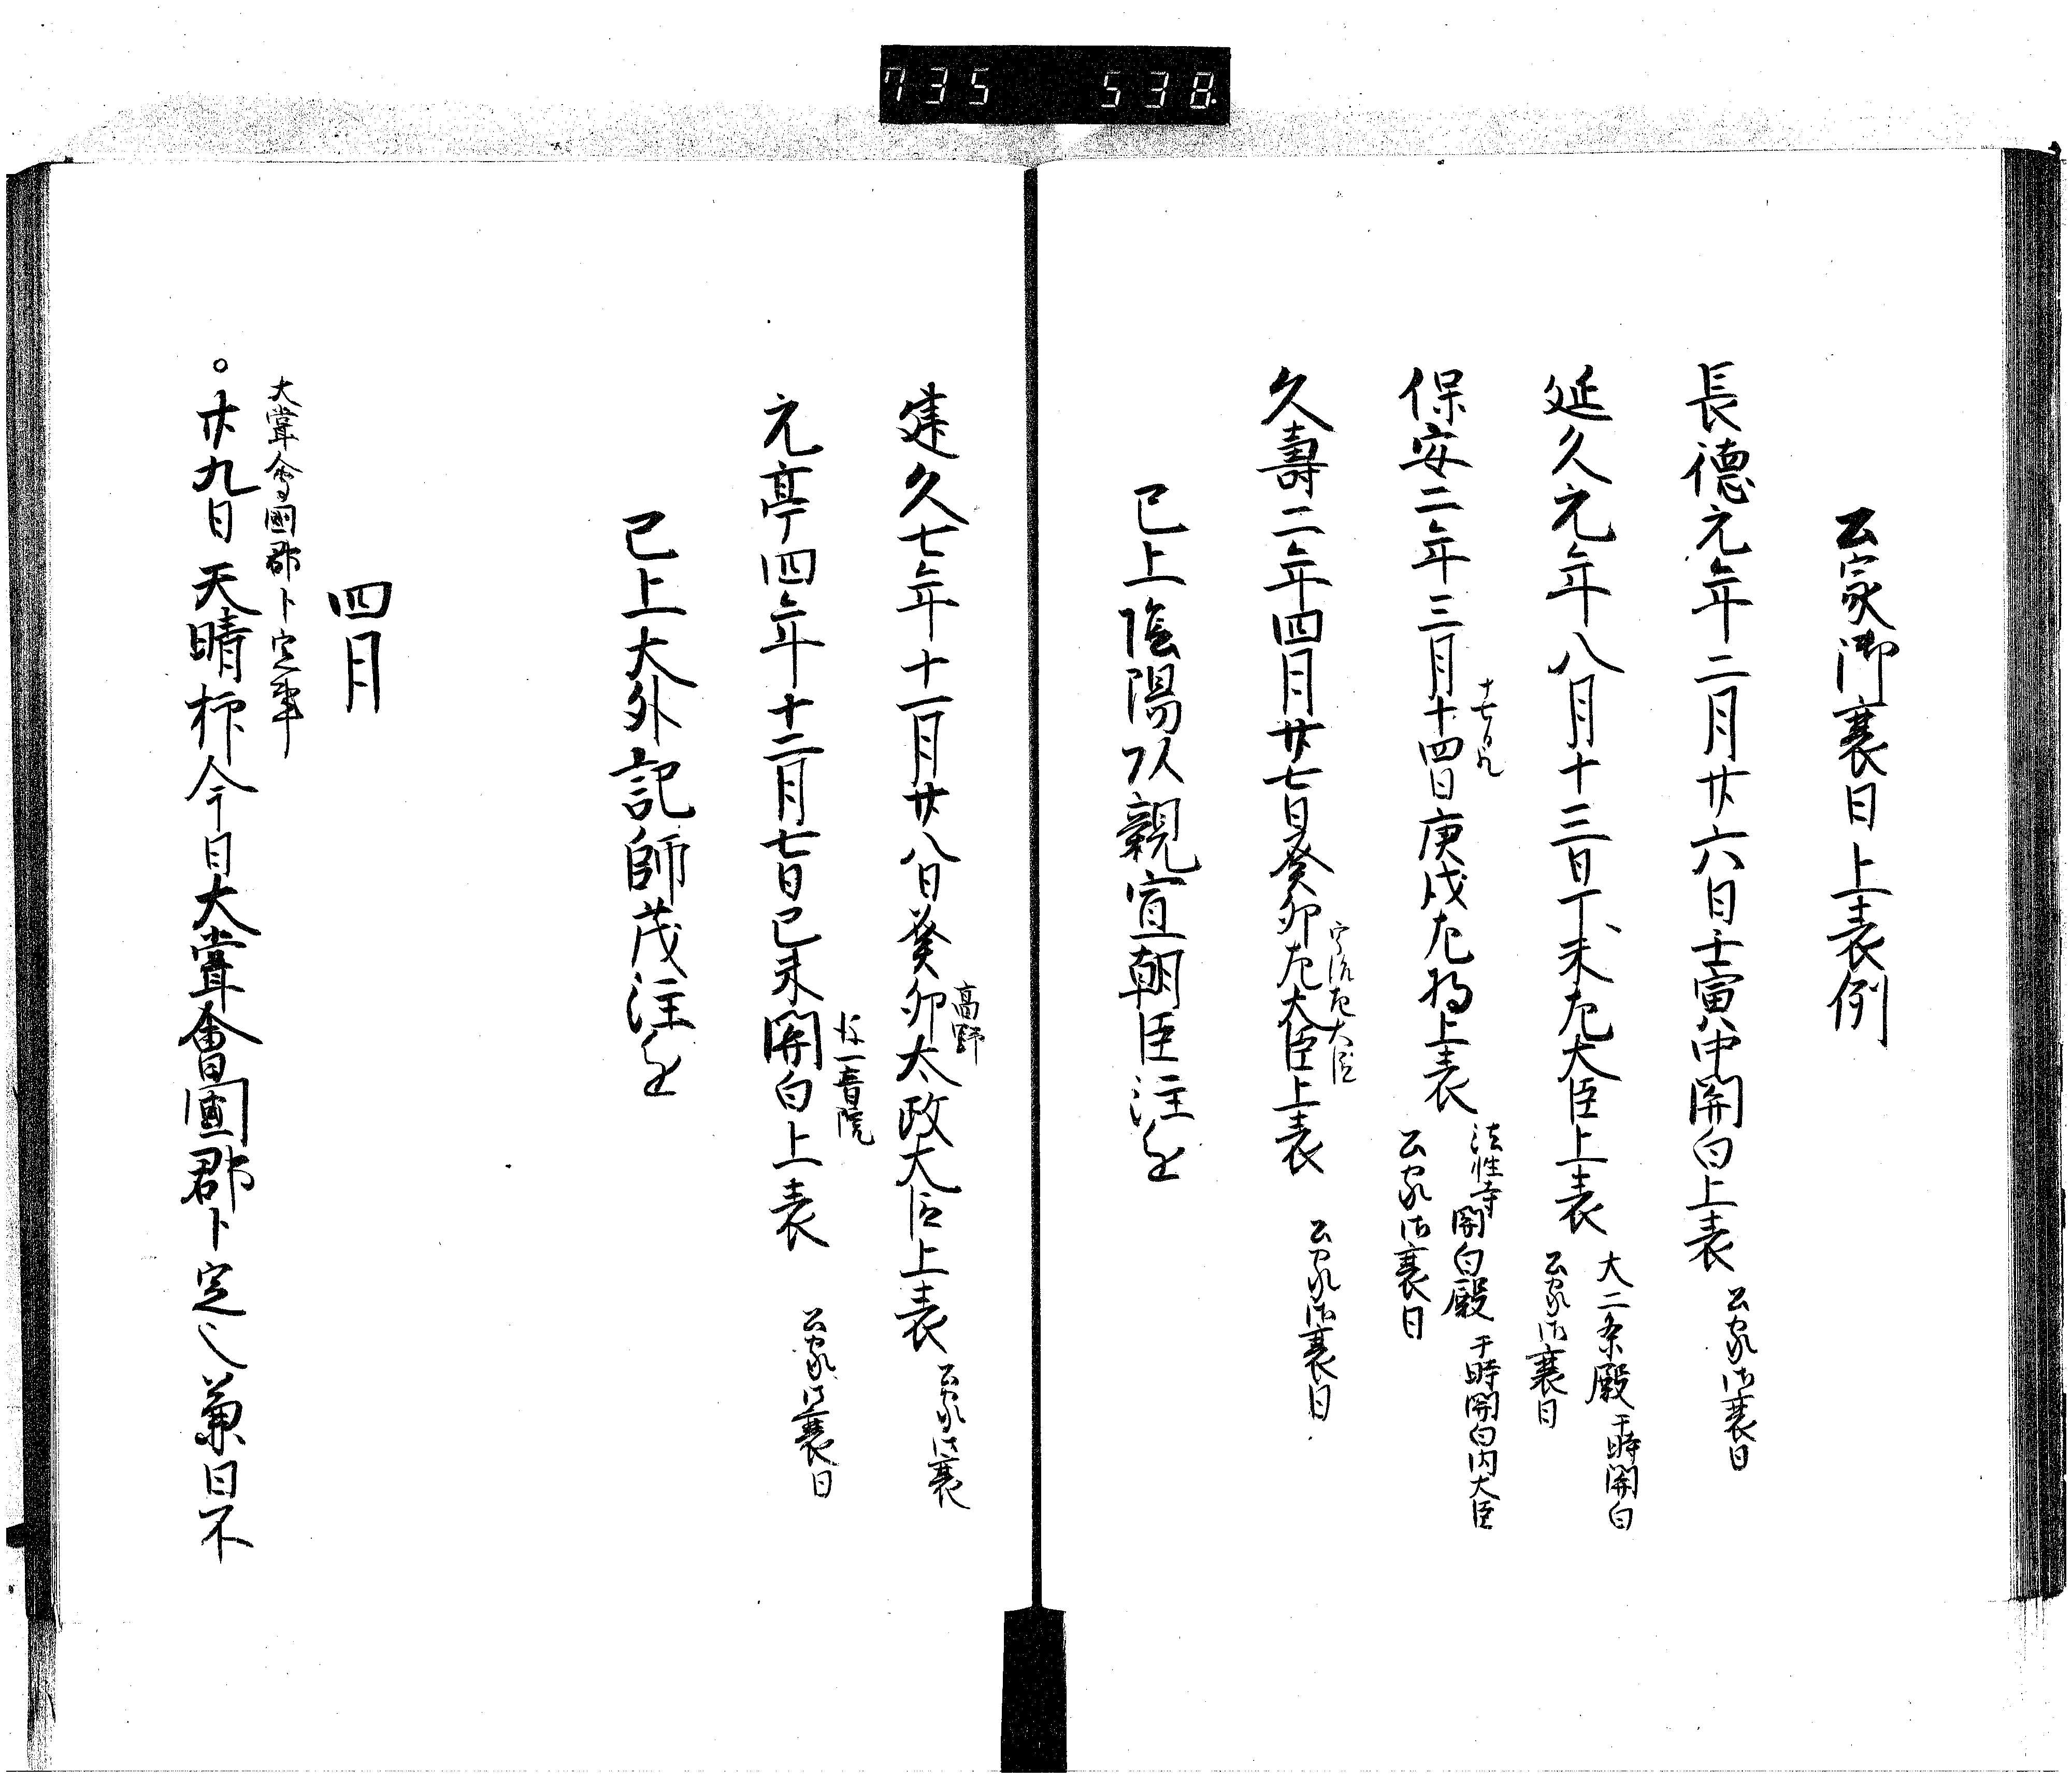 735 538
公家御衰日上表例
長徳元年二月廿六日壬寅 関白上表 公家御衰日
延久元年八月十三日丁未左大臣上表 大二条殿 于時関白
公家御衰日
十七日凡
保安二年三月十四日庚戌左将上表 法性寺関白殿 于時関白内大臣
公家御衰日
宇治左大臣
久壽二年四月廿七日癸卯左大臣上表 公家御衰日
已上陰陽頭親宣朝臣注進
高野
建久七年十一月廿八日癸卯太政大臣上表 公家御衰
後一音院
元亨四年十二月七日己未関白上表 公家御衰日
已上大外記師茂注進
四月
大嘗會國郡卜定事
。廿九日天晴抑今日大嘗會國郡卜定也兼日不